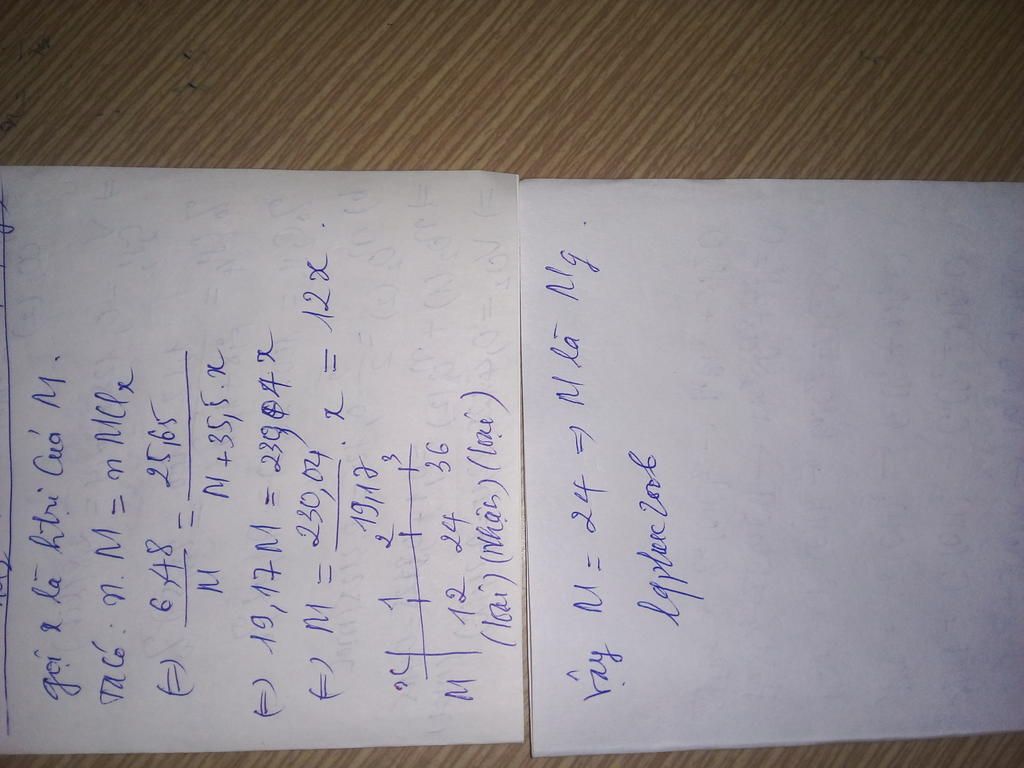 gọi x là htrị của M.
Ta có: n M = n MClx
(=) 6,48 / M = 25,65 / M + 35,5.x
(=) 19,17M = 230,04x
(=) M = 230,04 / 19,17 . x = 12x.
x | 1 | 2 | 3
M | 12 24 36
(loại) (nhận) (loại)
Vậy M = 24 => M là Mg.
lgphuc2006